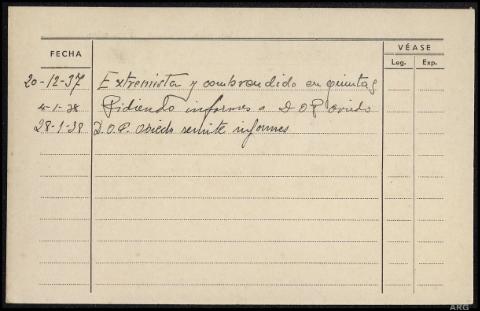 VÉASE
FECHA
Leg. Exp.
20-12-37 Extremista y comprendido en quintas
4-1-38 Pidiendo informes a D.O.P. Oviedo
28-1-38 D.O.P. Oviedo remite informes
ARG